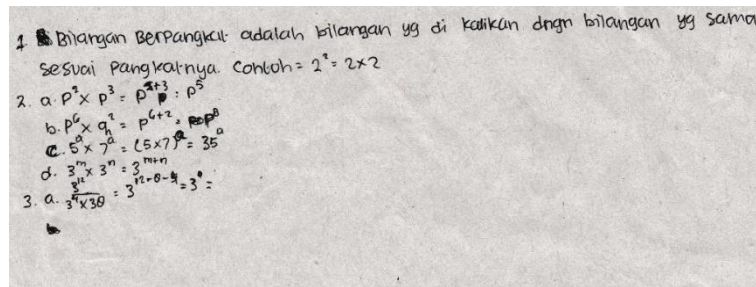 1 Bilangan Berpangkat adalah bilangan yg di kalikan dngn bilangan yg sama
sesuai pangkatnya. Contoh = 2² = 2×2
2. a. p² × p³ = p²⁺³ = p⁵
b. p⁶ × q² = p⁶⁺² = p⁸
c. 5ᵃ × 7ᵃ = (5×7)ᵃ = 35ᵃ
d. 3ᵐ × 3ⁿ = 3ᵐ⁺ⁿ
3. a. 3¹²/3⁴×3⁸ = 3¹²⁻⁸⁻⁴ = 3⁰ =